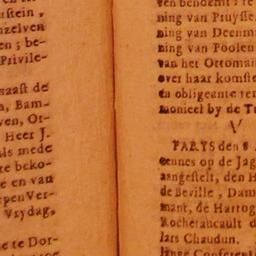 nstein,
nzelven
en; be-
Privile-
saast de
, Bam-
ven, Or-
Heer J.
als mede
te beko-
e en van
epenVer-
Vrydag,
te Dor-
ven benoemt : te
ning van Pruysse
ning van Deenm
ning van Poolen
van het Ottoman
over haar komste
en obligeante ter
monieel by de Tu
V
PARYS den 8
eennes op de Jag
aangestelt, den H
de Beville, Dam
mant, de Hartog
Rocheraucault d
lars Chaudun.